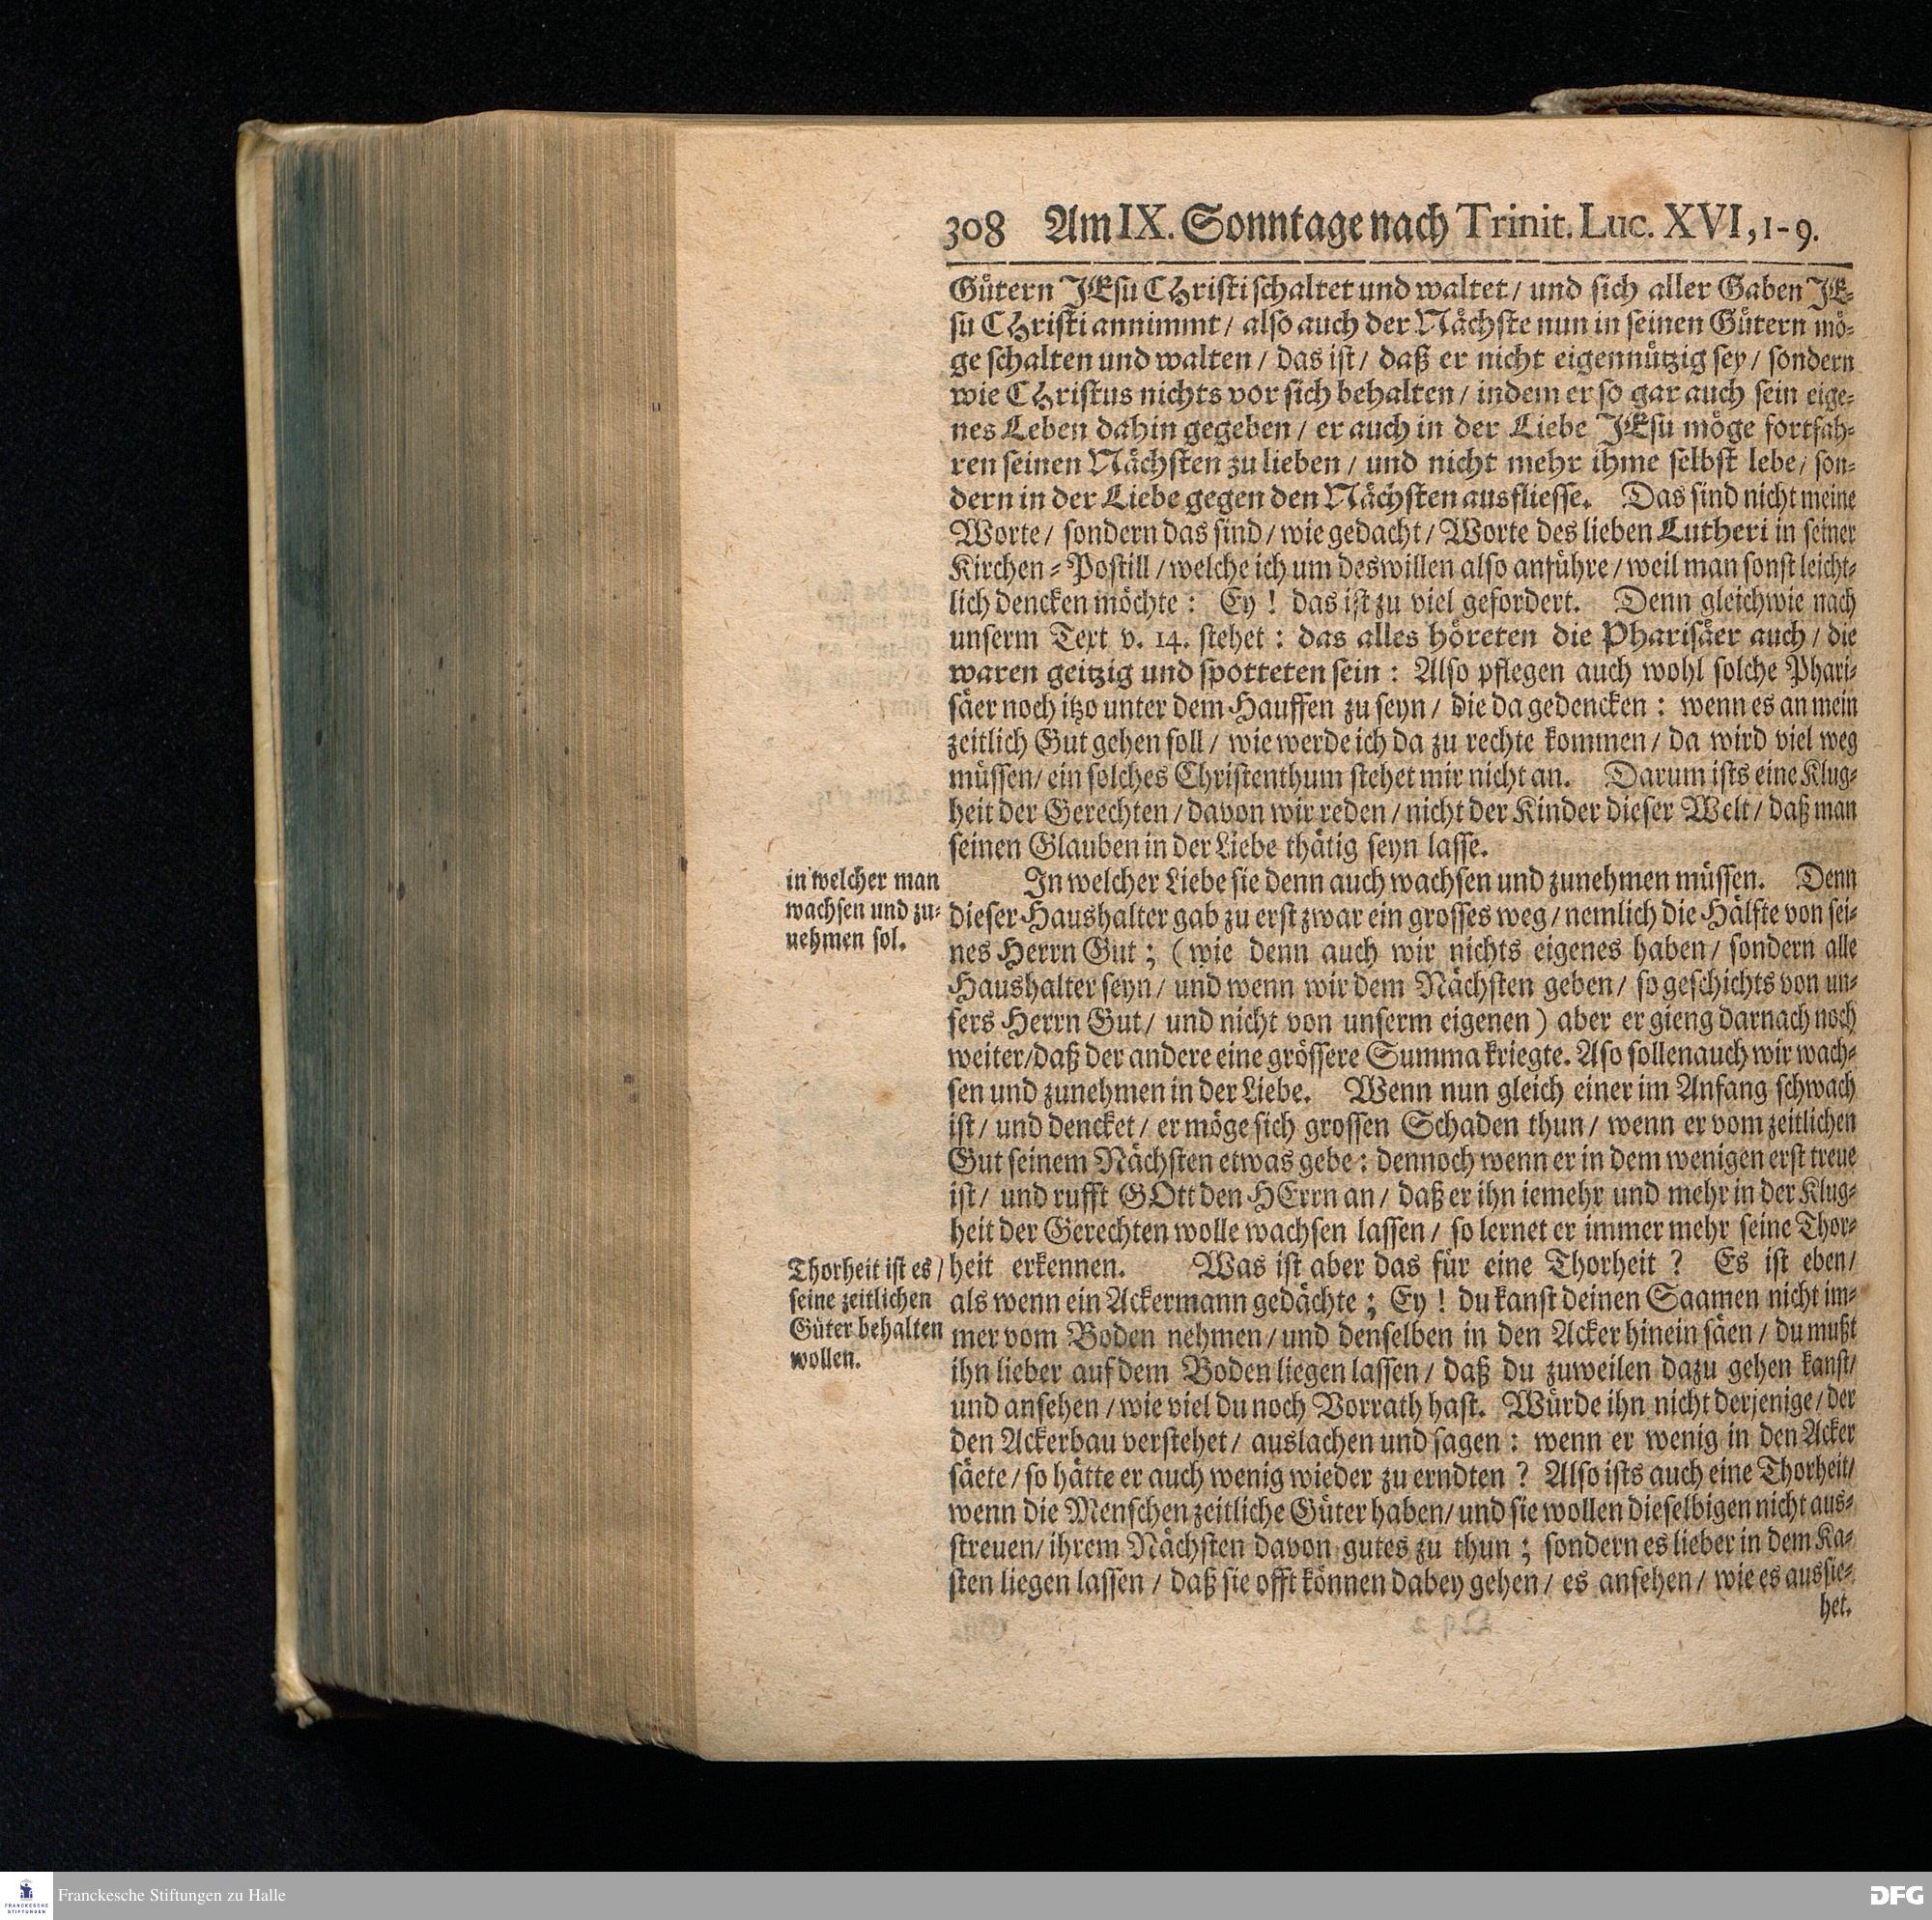 308 Am IX. Sonntage nach Trinit. Luc. XVI, 1-9.
Gütern JEsu CHristi schaltet und waltet / und sich aller Gaben JE-
su CHristi annimmt / also auch der Nächste nun in seinen Gütern mö-
ge schalten und walten / das ist / daß er nicht eigennützig sey / sondern
wie CHristus nichts vor sich behalten / indem er so gar auch sein eige-
nes Leben dahin gegeben / er auch in der Liebe JEsu möge fortfah-
ren seinen Nächsten zu lieben / und nicht mehr ihme selbst lebe / son-
dern in der Liebe gegen den Nächsten ausfliesse. Das sind nicht meine
Worte / sondern das sind / wie gedacht / Worte des lieben Lutheri in seiner
Kirchen-Postill / welche ich um deswillen also anführe / weil man sonst leicht-
lich dencken möchte: Ey! das ist zu viel gefordert. Denn gleichwie nach
unserm Text v. 14. stehet: das alles höreten die Pharisäer auch / die
waren geitzig und spotteten sein: Also pflegen auch wohl solche Phari-
säer noch itzo unter dem Hauffen zu seyn / die da gedencken: wenn es an mein
zeitlich Gut gehen soll / wie werde ich da zu rechte kommen / da wird viel weg
müssen / ein solches Christenthum stehet mir nicht an. Darum ists eine Klug-
heit der Gerechten / davon wir reden / nicht der Kinder dieser Welt / daß man
seinen Glauben in der Liebe thätig seyn lasse.
in welcher man
wachsen und zu-
nehmen sol.
In welcher Liebe sie denn auch wachsen und zunehmen müssen. Denn
dieser Haushalter gab zu erst zwar ein grosses weg / nemlich die Hälfte von sei-
nes Herrn Gut; (wie denn auch wir nichts eigenes haben / sondern alle
Haushalter seyn / und wenn wir dem Nächsten geben / so geschichts von un-
sers Herrn Gut / und nicht von unserm eigenen) aber er gieng darnach noch
weiter / daß der andere eine grössere Summa kriegte. Aso sollen auch wir wach-
sen und zunehmen in der Liebe. Wenn nun gleich einer im Anfang schwach
ist / und dencket / er möge sich grossen Schaden thun / wenn er vom zeitlichen
Gut seinem Nächsten etwas gebe: dennoch wenn er in dem wenigen erst treue
ist / und rufft GOtt den HErrn an / daß er ihn iemehr und mehr in der Klug-
heit der Gerechten wolle wachsen lassen / so lernet er immer mehr seine Thor-
heit erkennen. Was ist aber das für eine Thorheit? Es ist eben /
Thorheit ist es /
seine zeitlichen
Güter behalten
wollen.
als wenn ein Ackermann gedächte; Ey! du kanst deinen Saamen nicht im-
mer vom Boden nehmen / und denselben in den Acker hinein säen / du mußt
ihn lieber auf dem Boden liegen lassen / daß du zuweilen dazu gehen kanst /
und ansehen / wie viel du noch Vorrath hast. Würde ihn nicht derjenige / der
den Ackerbau verstehet / auslachen und sagen: wenn er wenig in den Acker
säete / so hätte er auch wenig wieder zu erndten? Also ists auch eine Thorheit /
wenn die Menschen zeitliche Güter haben / und sie wollen dieselbigen nicht aus-
streuen / ihrem Nächsten davon gutes zu thun; sondern es lieber in dem Ka-
sten liegen lassen / daß sie offt können dabey gehen / es ansehen / wie es aussie-
het.
FRANCKESCHE
STIFTUNGEN
Franckesche Stiftungen zu Halle
DFG